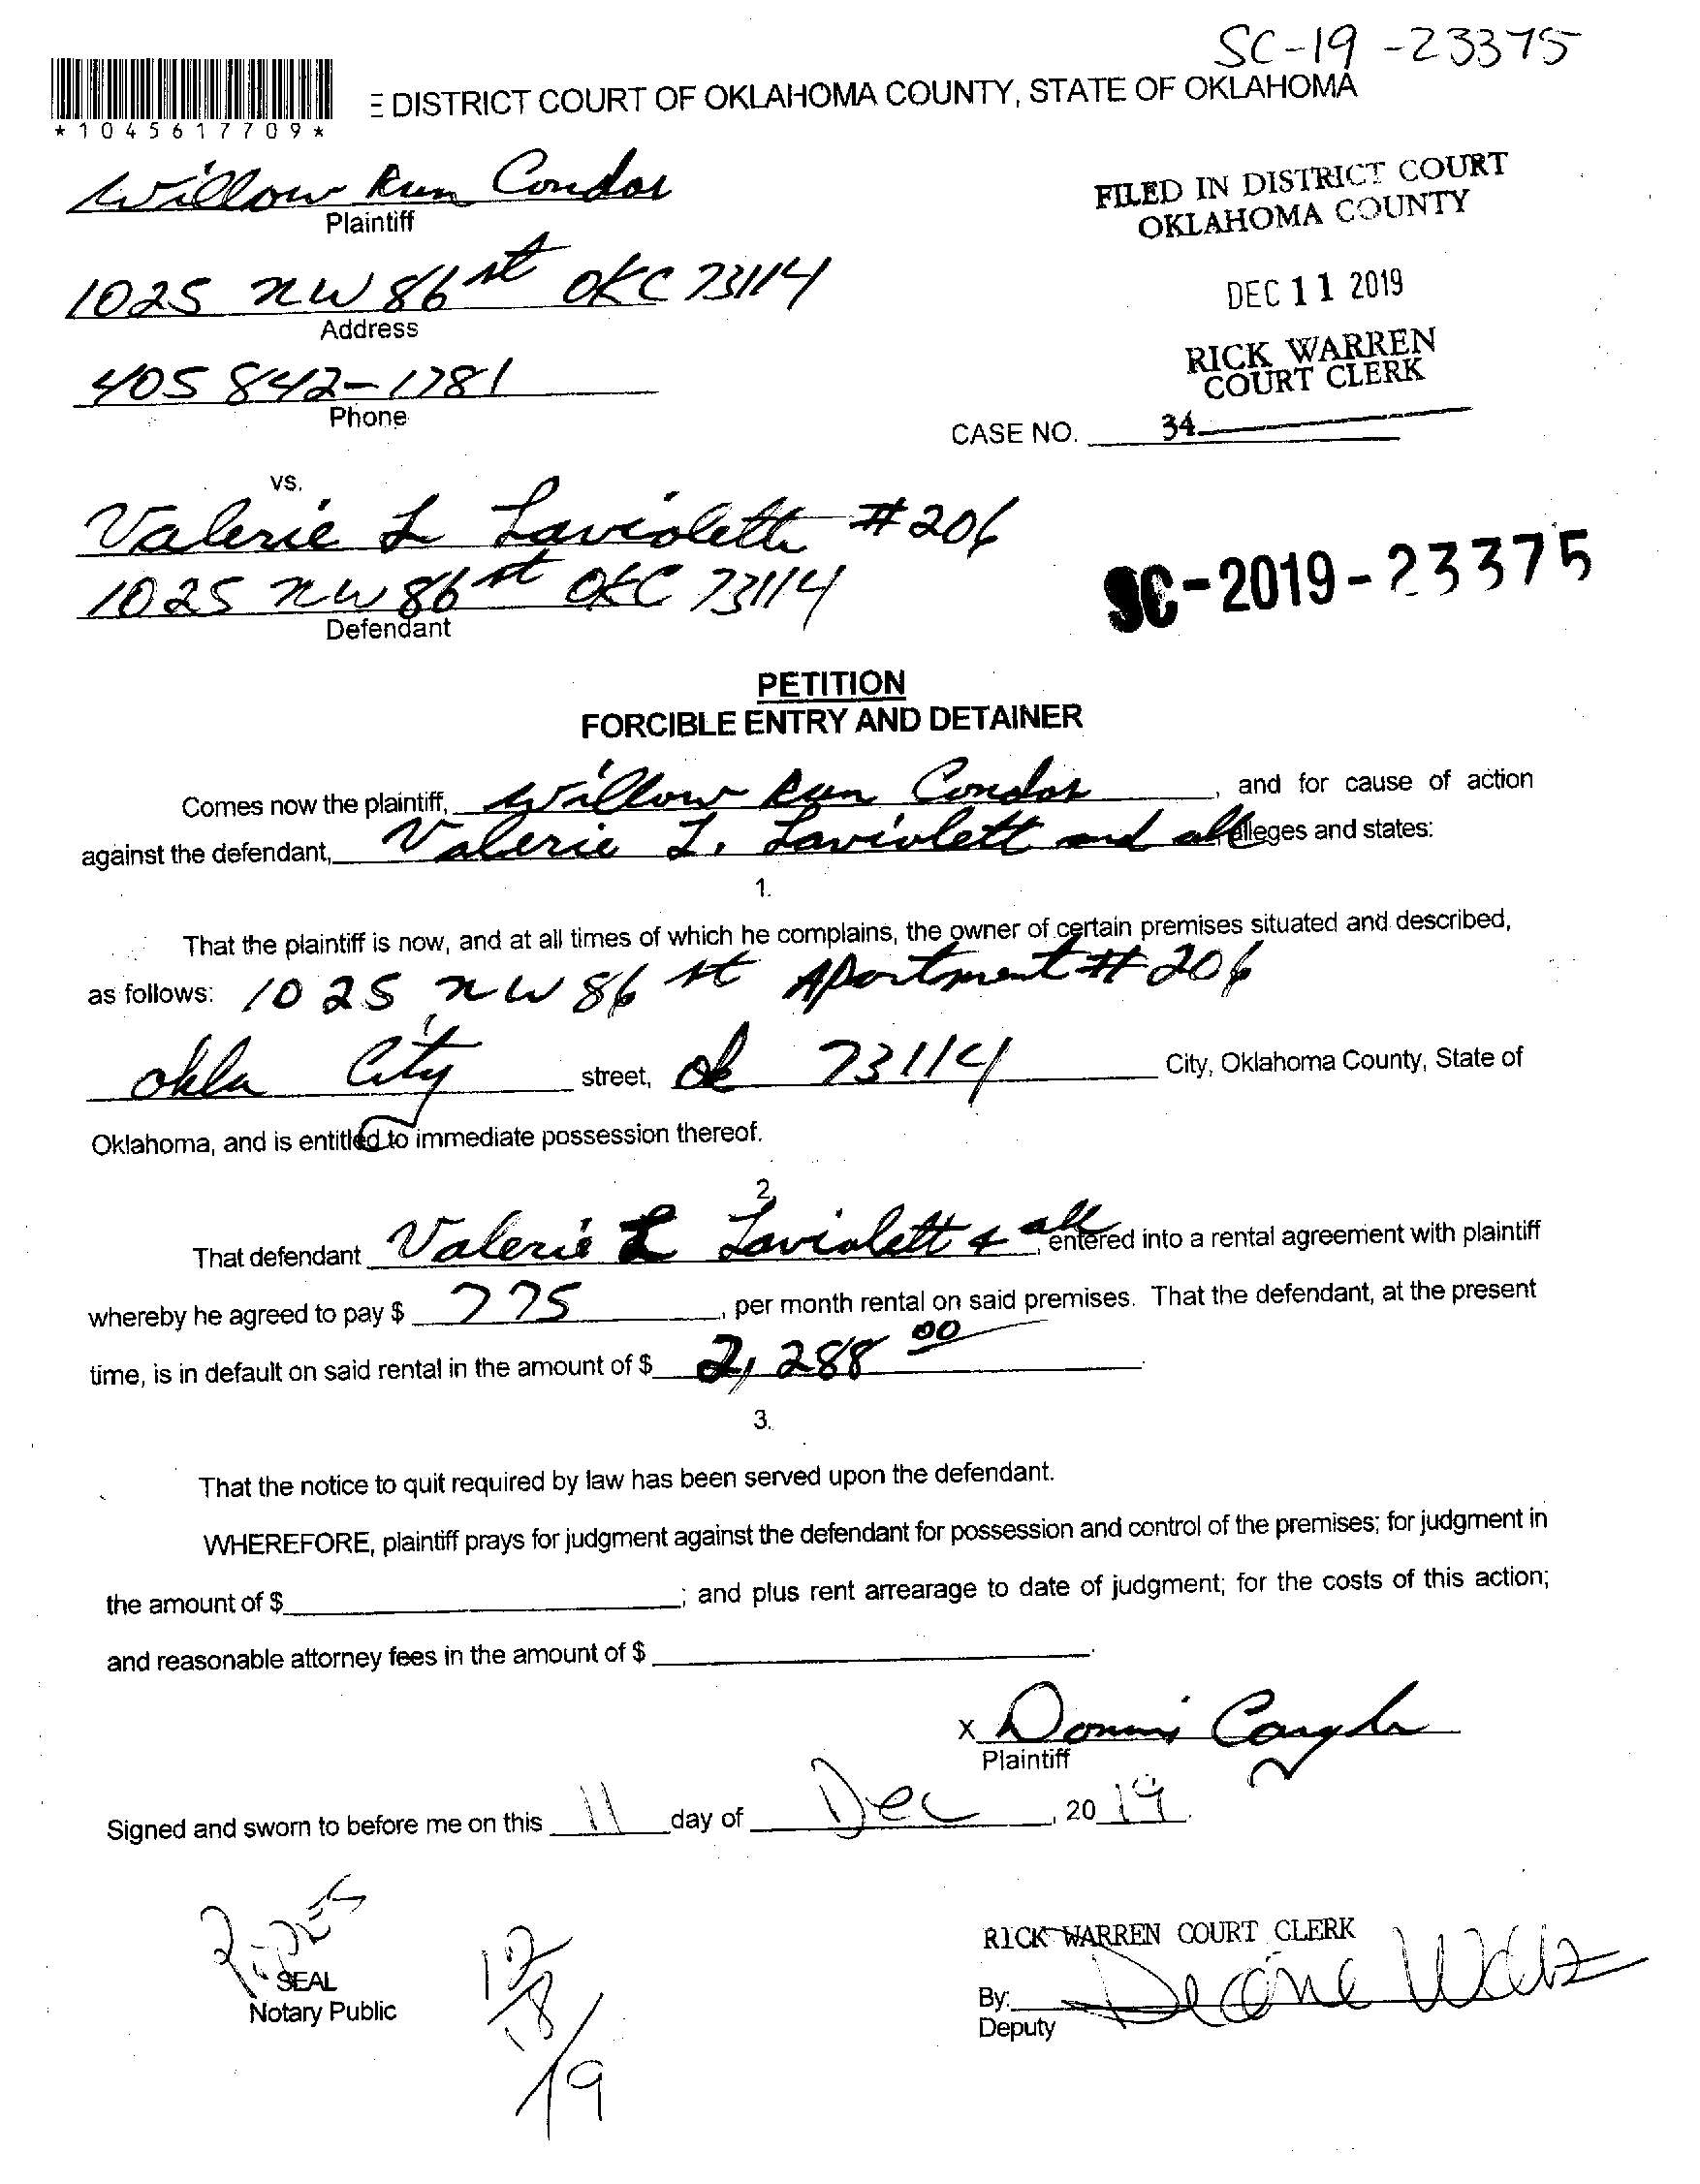 SC-19-23375
*1045617709*
E DISTRICT COURT OF OKLAHOMA COUNTY, STATE OF OKLAHOMA
Willow Run Condos
Plaintiff
FILED IN DISTRICT COURT
OKLAHOMA COUNTY
1025 NW 86 st OKC 73114
Address
DEC 11 2019
RICK WARREN
COURT CLERK
405 842-1781
Phone
CASE NO. 34
vs.
Valerie L Laviolett #206
1025 NW 86 st OKC 73114
Defendant
SC-2019-23375
PETITION
FORCIBLE ENTRY AND DETAINER
Comes now the plaintiff, Willow Run Condos, and for cause of action
against the defendant, Valerie L. Laviolett and all alleges and states:
1.
That the plaintiff is now, and at all times of which he complains, the owner of certain premises situated and described,
as follows: 1025 NW 86 st Apartment #206
okla City street, ok 73114 City, Oklahoma County, State of
Oklahoma, and is entitled to immediate possession thereof.
2.
That defendant Valerie L Laviolett & all, entered into a rental agreement with plaintiff
whereby he agreed to pay $ 775, per month rental on said premises. That the defendant, at the present
time, is in default on said rental in the amount of $ 2,288 00
3.
That the notice to quit required by law has been served upon the defendant.
WHEREFORE, plaintiff prays for judgment against the defendant for possession and control of the premises; for judgment in
the amount of $ ; and plus rent arrearage to date of judgment; for the costs of this action;
and reasonable attorney fees in the amount of $ .
X
Plaintiff
Signed and sworn to before me on this 11 day of Dec, 2019.
SEAL
Notary Public
12/18/19
RICK WARREN COURT CLERK
By:
Deputy